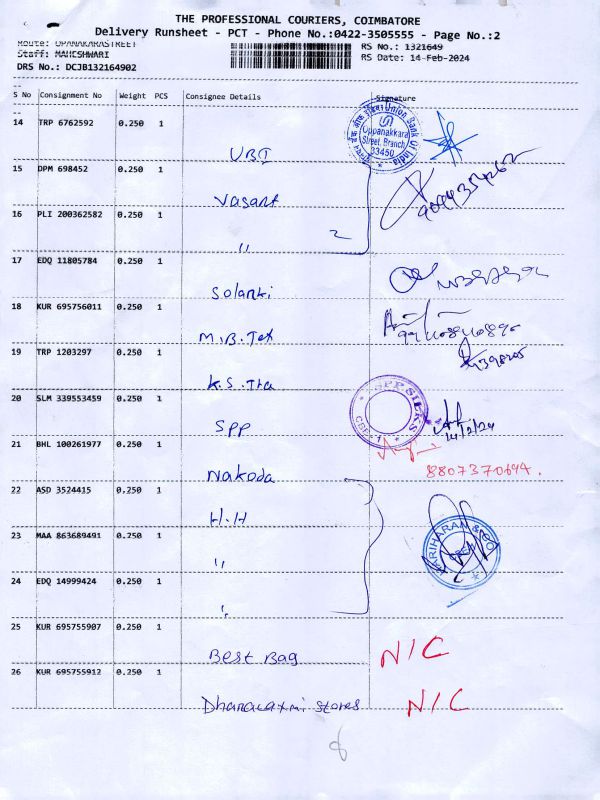 THE PROFESSIONAL COURIERS, COIMBATORE
Delivery Runsheet - PCT - Phone No.:0422-3505555 - Page No.:2
Route: OPANAKARASTREET
Staff: MAHESHWARI
DRS No.: DCJB132164902
RS No.: 1321649
RS Date: 14-Feb-2024
S No Consignment No Weight PCS Consignee Details Signature
14 TRP 6762592 0.250 1
UBI
Union Bank Of India
Oppanakkara
Street, Branch
15 DPM 698452 0.250 1
Vasant
16 PLI 200362582 0.250 1
"
2
17 EDQ 11805784 0.250 1
Solanki
18 KUR 695756011 0.250 1
M.B.Tex
19 TRP 1203297 0.250 1
K.S.Tra
20 SLM 339553459 0.250 1
SPP
SPP SILKS
CBE-1
14/2/24
21 BHL 100261977 0.250 1
Nakoda
8807370694.
22 ASD 3524415 0.250 1
H.H
23 MAA 863689491 0.250 1
"
HARIHARAN & CO
24 EDQ 14999424 0.250 1
"
25 KUR 695755907 0.250 1
Best Bag
N/C
26 KUR 695755912 0.250 1
Dhanalaxmi stores
N/C
8